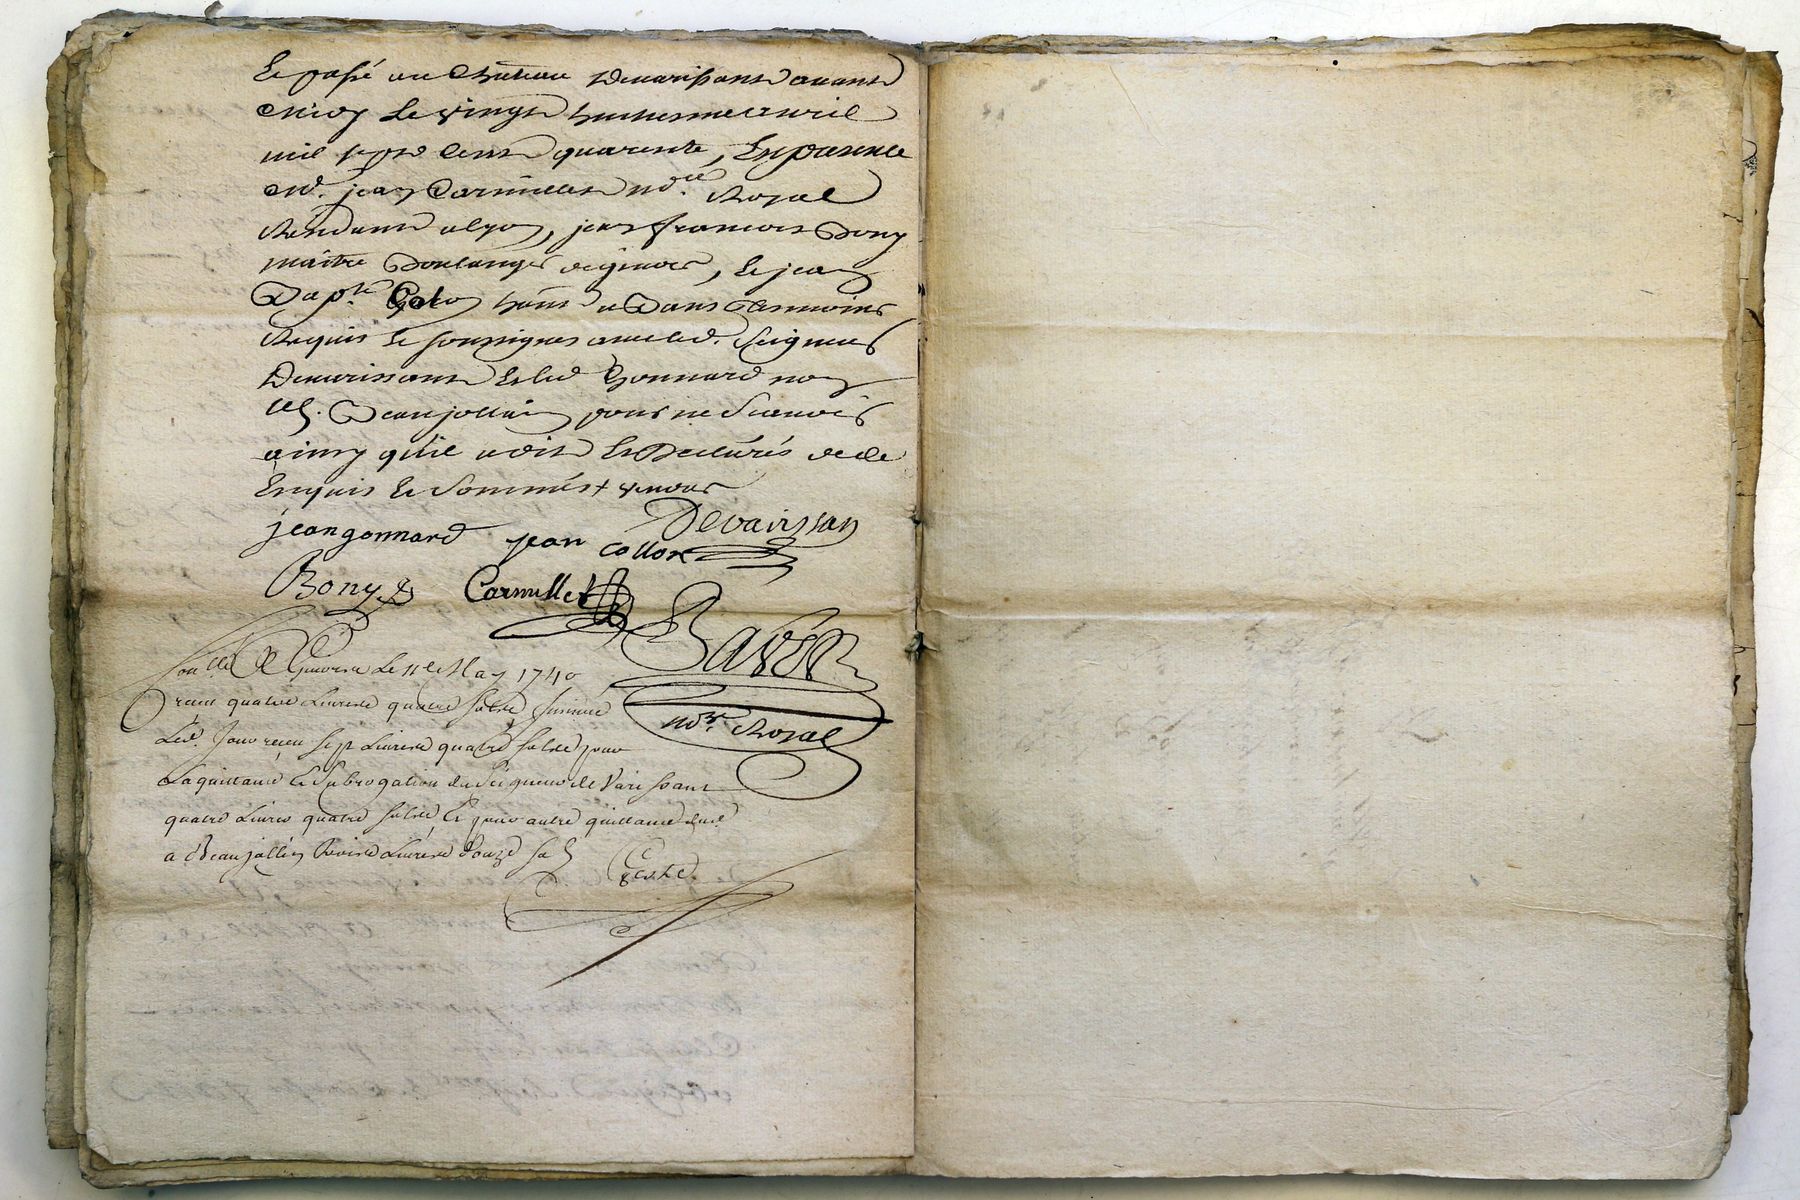 Et passé au Château Devarissant avant
Midy Le vingt huitiesme avril
mil sept cent quarente, En presence
de Me. jean Carmillet nore Royal
Residant a lyon, jean francois Bony
maitre Boulanger deymoer, et jean
Bapte. Colon habt a Dans Tesmoins
Requis et soussignes avec led. Seigneur
Devarissant et led Gonnard non
led. Beaujollin pour ne scavoir
ainsy qu'il a dit et Declaré de ce
Enquis et Sommés
jean gonnard jean collon Devarissan
Bony Carmillet
Bavet
nore Royal
Conllé Le 11e May 1740
recu quatre Livres quatre sols
Led. Jour receu sept Livres quatre sols pour
La quittance et Subrogation du Seigneur de Varissant
quatre Livres quatre sols et pour autre quittance dud
a Beaujollin trois Livres Douze sols